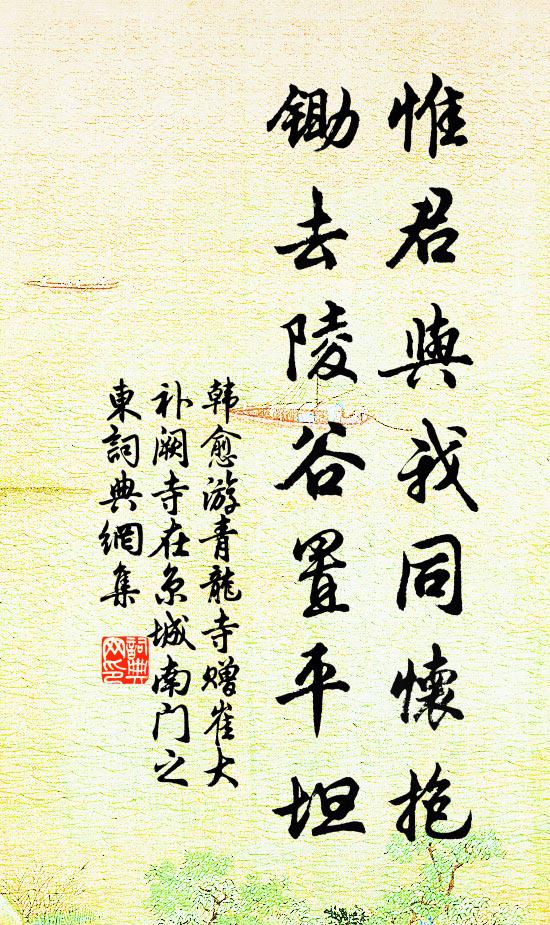 惟君與我同懷抱
鋤去陵谷置平坦
韩愈游青龍寺赠崔大
补阙寺在京城南门之
東詞典網集
詞典
网印